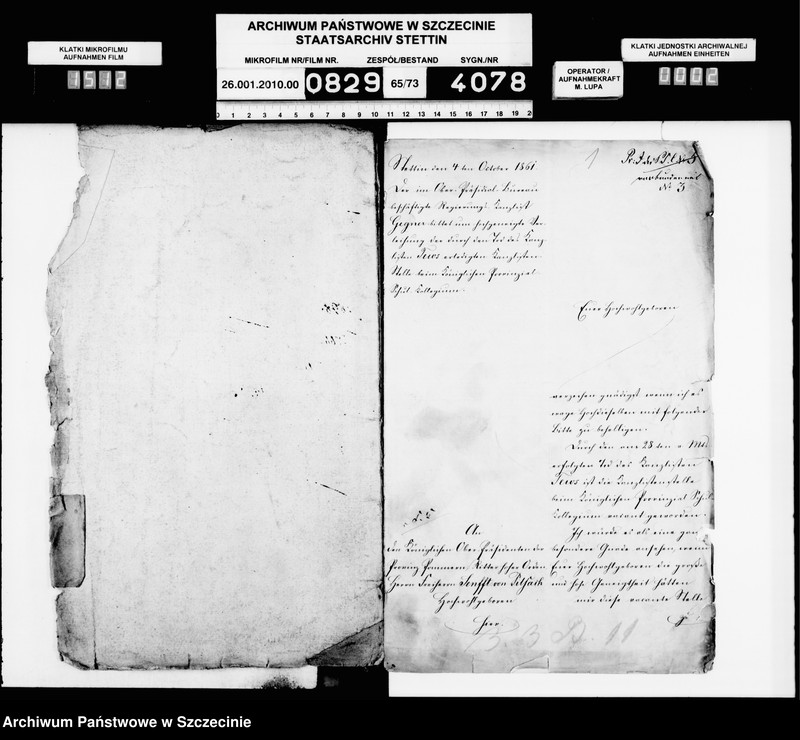 ARCHIWUM PAŃSTWOWE W SZCZECINIE
STAATSARCHIV STETTIN
KLATKI MIKROFILMU
AUFNAHMEN FILM
1512
MIKROFILM NR/FILM NR. ZESPÓŁ/BESTAND SYGN./NR
26.001.2010.00 0829 65/73 4078
0 1 2 3 4 5 6 7 8 9 10 11 12 13 14 15 16 17 18 19 2
OPERATOR /
AUFNAHMEKRAFT
M. LUPA
KLATKI JEDNOSTKI ARCHIWALNEJ
AUFNAHMEN EINHEITEN
0002
1
No 3
Stettin den 4ten October 1861
Der im Ober-Präsidial-Bureau
beschäftigte Regierungs-Kanzlist
Gegner bittet um hochgeneigte Ver-
leihung der durch den Tod des Kanz-
listen Tews erledigten Kanzlisten-
Stelle beim Königlichen Provinzial-
Schul-Kollegium.
Euer Hochwohlgeboren
verzeihen gnädigst wenn ich es
wage Hochdieselben mit folgender
Bitte zu behelligen.
Durch den am 28ten v. Mts
erfolgten Tod des Kanzlisten
Tews ist die Kanzlistenstelle
beim Königlichen Provinzial Schul
Kollegium vacant geworden.
Ich würde es als eine ganz
besondere Gnade ansehen, wenn
Euer Hochwohlgeboren die große
und hohe Geneigtheit hätten
mir diese vacante Stelle
An
den Königlichen Ober-Präsidenten der
Provinz Pommern, Ritter hoher Orden
Herrn Freiherrn Senfft von Pilsach
Hochwohlgeboren
hier.
Archiwum Państwowe w Szczecinie